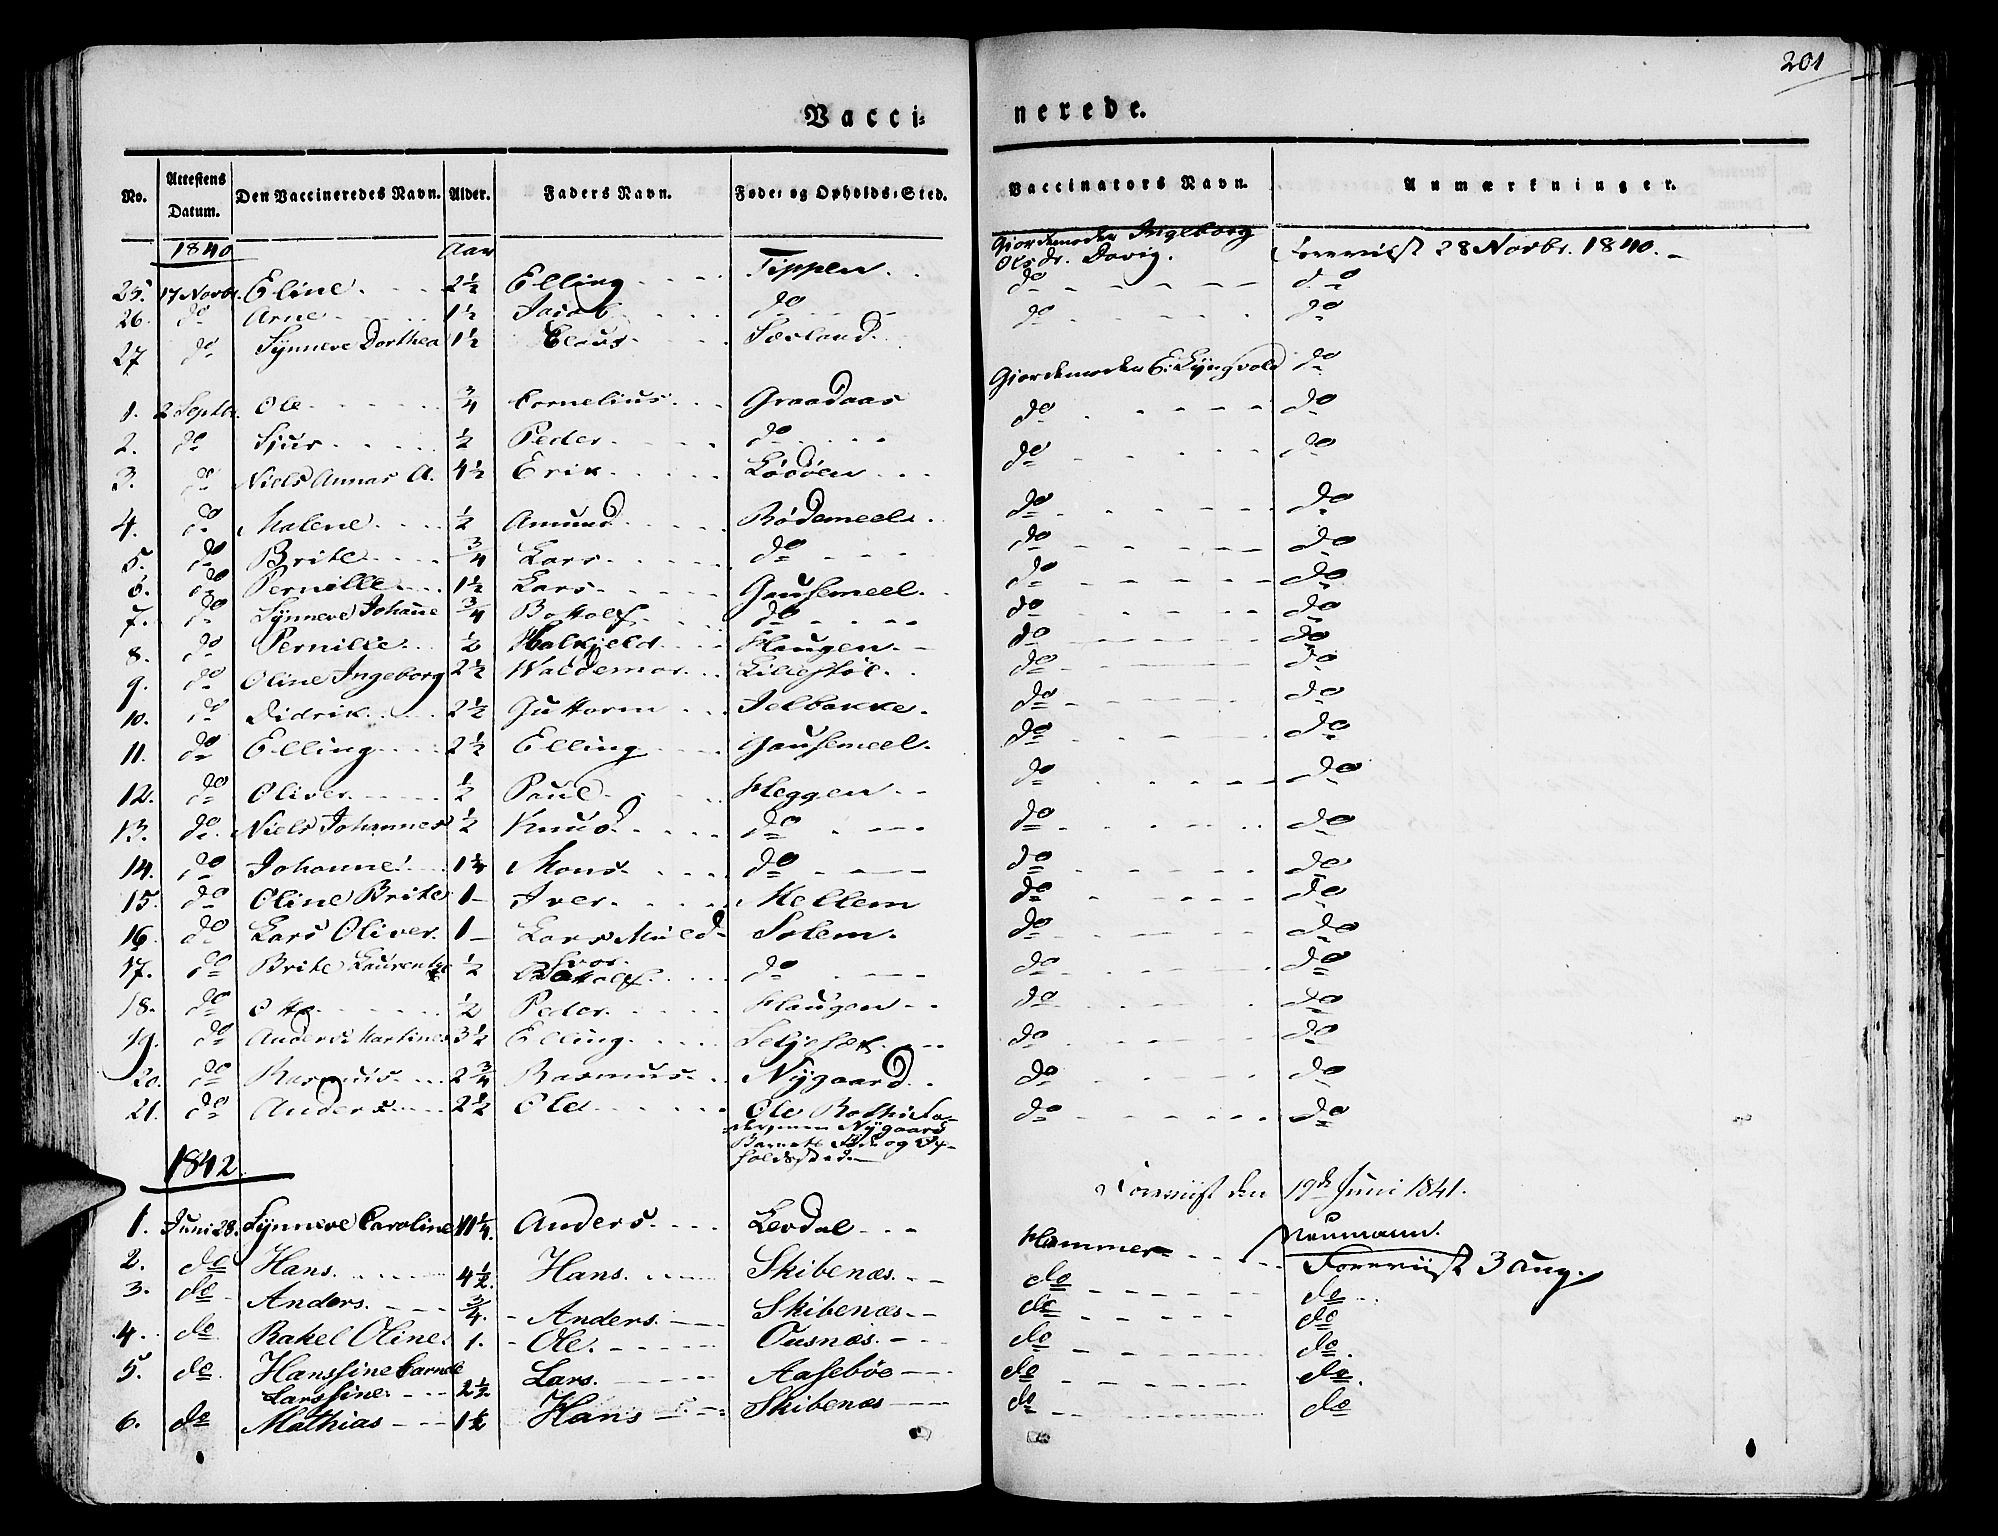 201
Vacci- nerede.
No. Attestens Datum. Den Vaccineredes Navn. Alder. Faders Navn. Føde- og Opholds-Sted. Vaccinators Navn. Anmærkninger.
1840 Aar
Gjordemoder Ingeborg
25. 17 Novbr. Eline 2½ Elling Tippen Olsdr. Dovig. Foreviist 28 Novbr. 1840.
26. do Arne 1½ Jacob do do do
27 do Synneve Dorthea 1½ Claus Sævland do do
1. 2 Septbr. Ole ¾ Cornelius Graadaas Gjordemoder E. Lyngvold do
2. do Sjur ½ Peder do do do
3. do Niels Annas A. 4½ Erik Lødøen do do
4. do Malene ½ Amund Rødemeel do do
5. do Brite ¾ Lars do do do
6. do Pernille 1½ Lars Gausemeel do do
7. do Synneve Johanne ¾ Bottolf do do do
8. do Pernille ½ Halkjeld Haugen do do
9. do Oline Ingeborg 2½ Waldemar Lillestøl do do
10. do Didrik 2½ Guttorm Jelbakke do do
11. do Elling 2½ Elling Gausemeel do do
12. do Oliver ½ Paul Heggen do do
13. do Niels Johannes ½ Knud do do do
14. do Johanne Mons do do do
15. do Oline Brite 1 Iver Mellem do do
16. do Lars Oliver 1 Lars Solem do do
17. do Brite Laurentze ½ Bottolf do do do
18. do Otto ½ Peder Haugen do do
19. do Anders Martines 3½ Elling Seljeset do do
20. do Rasmus 2¾ Rasmus Nygaard do do
21. do Anders 2½ Ole Ole do do
Nygaard
Barnets Føde og Op-
holdssted
1842
Foreviist den 19de Juni 1841.
Neumann.
1. Juni 28. Synneve Caroline 11¼ Anders Levdal Hammer Foreviist 3 Aug.
2. do Hans 4½ Hans Skibenæs do do
3. do Anders ¾ Anders Skibenæs do do
4. do Rakel Oline 1. Ole Ousnæs do do
5. do Hanssine
Larssine 2½ Lars Aasebøe do do
6. do Mathias 1½ Hans Skibenæs do do